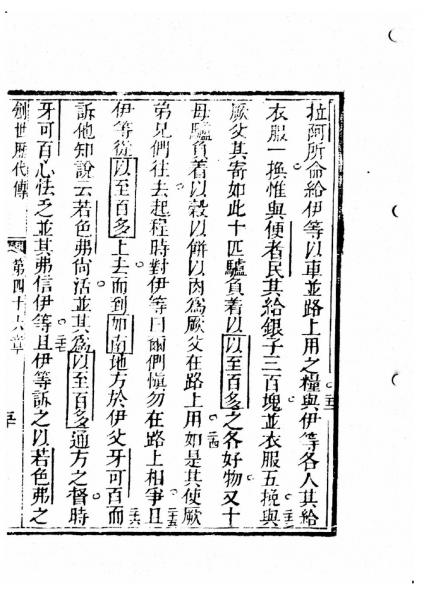 拉阿所命給伊等以車並路上用之糧與伊等各人其給
衣服一換惟與便者民其給銀子三百塊並衣服五換與
厥父其寄如此十匹驢負着以以至百多之各好物又十
母驢負着以穀以餅以肉爲厥父在路上用如是其使厥
弟兄們往去起程時對伊等曰爾們慎勿在路上相爭且
伊等從以至百多上去而到如南地方於伊父牙可百而
訴他知說云若色弗尚活並其爲以至百多通方之督時
牙可百心怯乏並其弗信伊等且伊等訴之以若色弗之
創世歷代傳 第四十六章